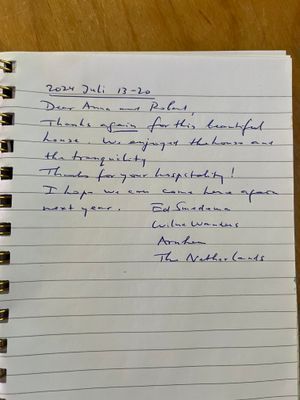 2024 Juli 13-20
Dear Anna and Robert,
Thanks again for this beautiful
house. We enjoyed the house and
the tranquility
Thanks for your hospitality!
I hope we can come here again
next year. Ed Smedema
Wilna Wanders
Arnhem
The Netherlands